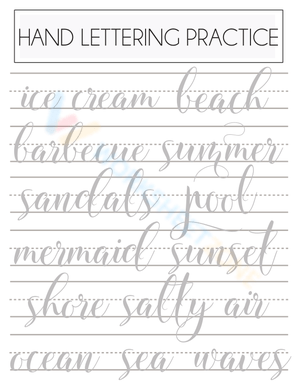 HAND LETTERING PRACTICE
ice cream beach
barbecue summer
sandals pool
mermaid sunset
shore salty air
ocean sea waves